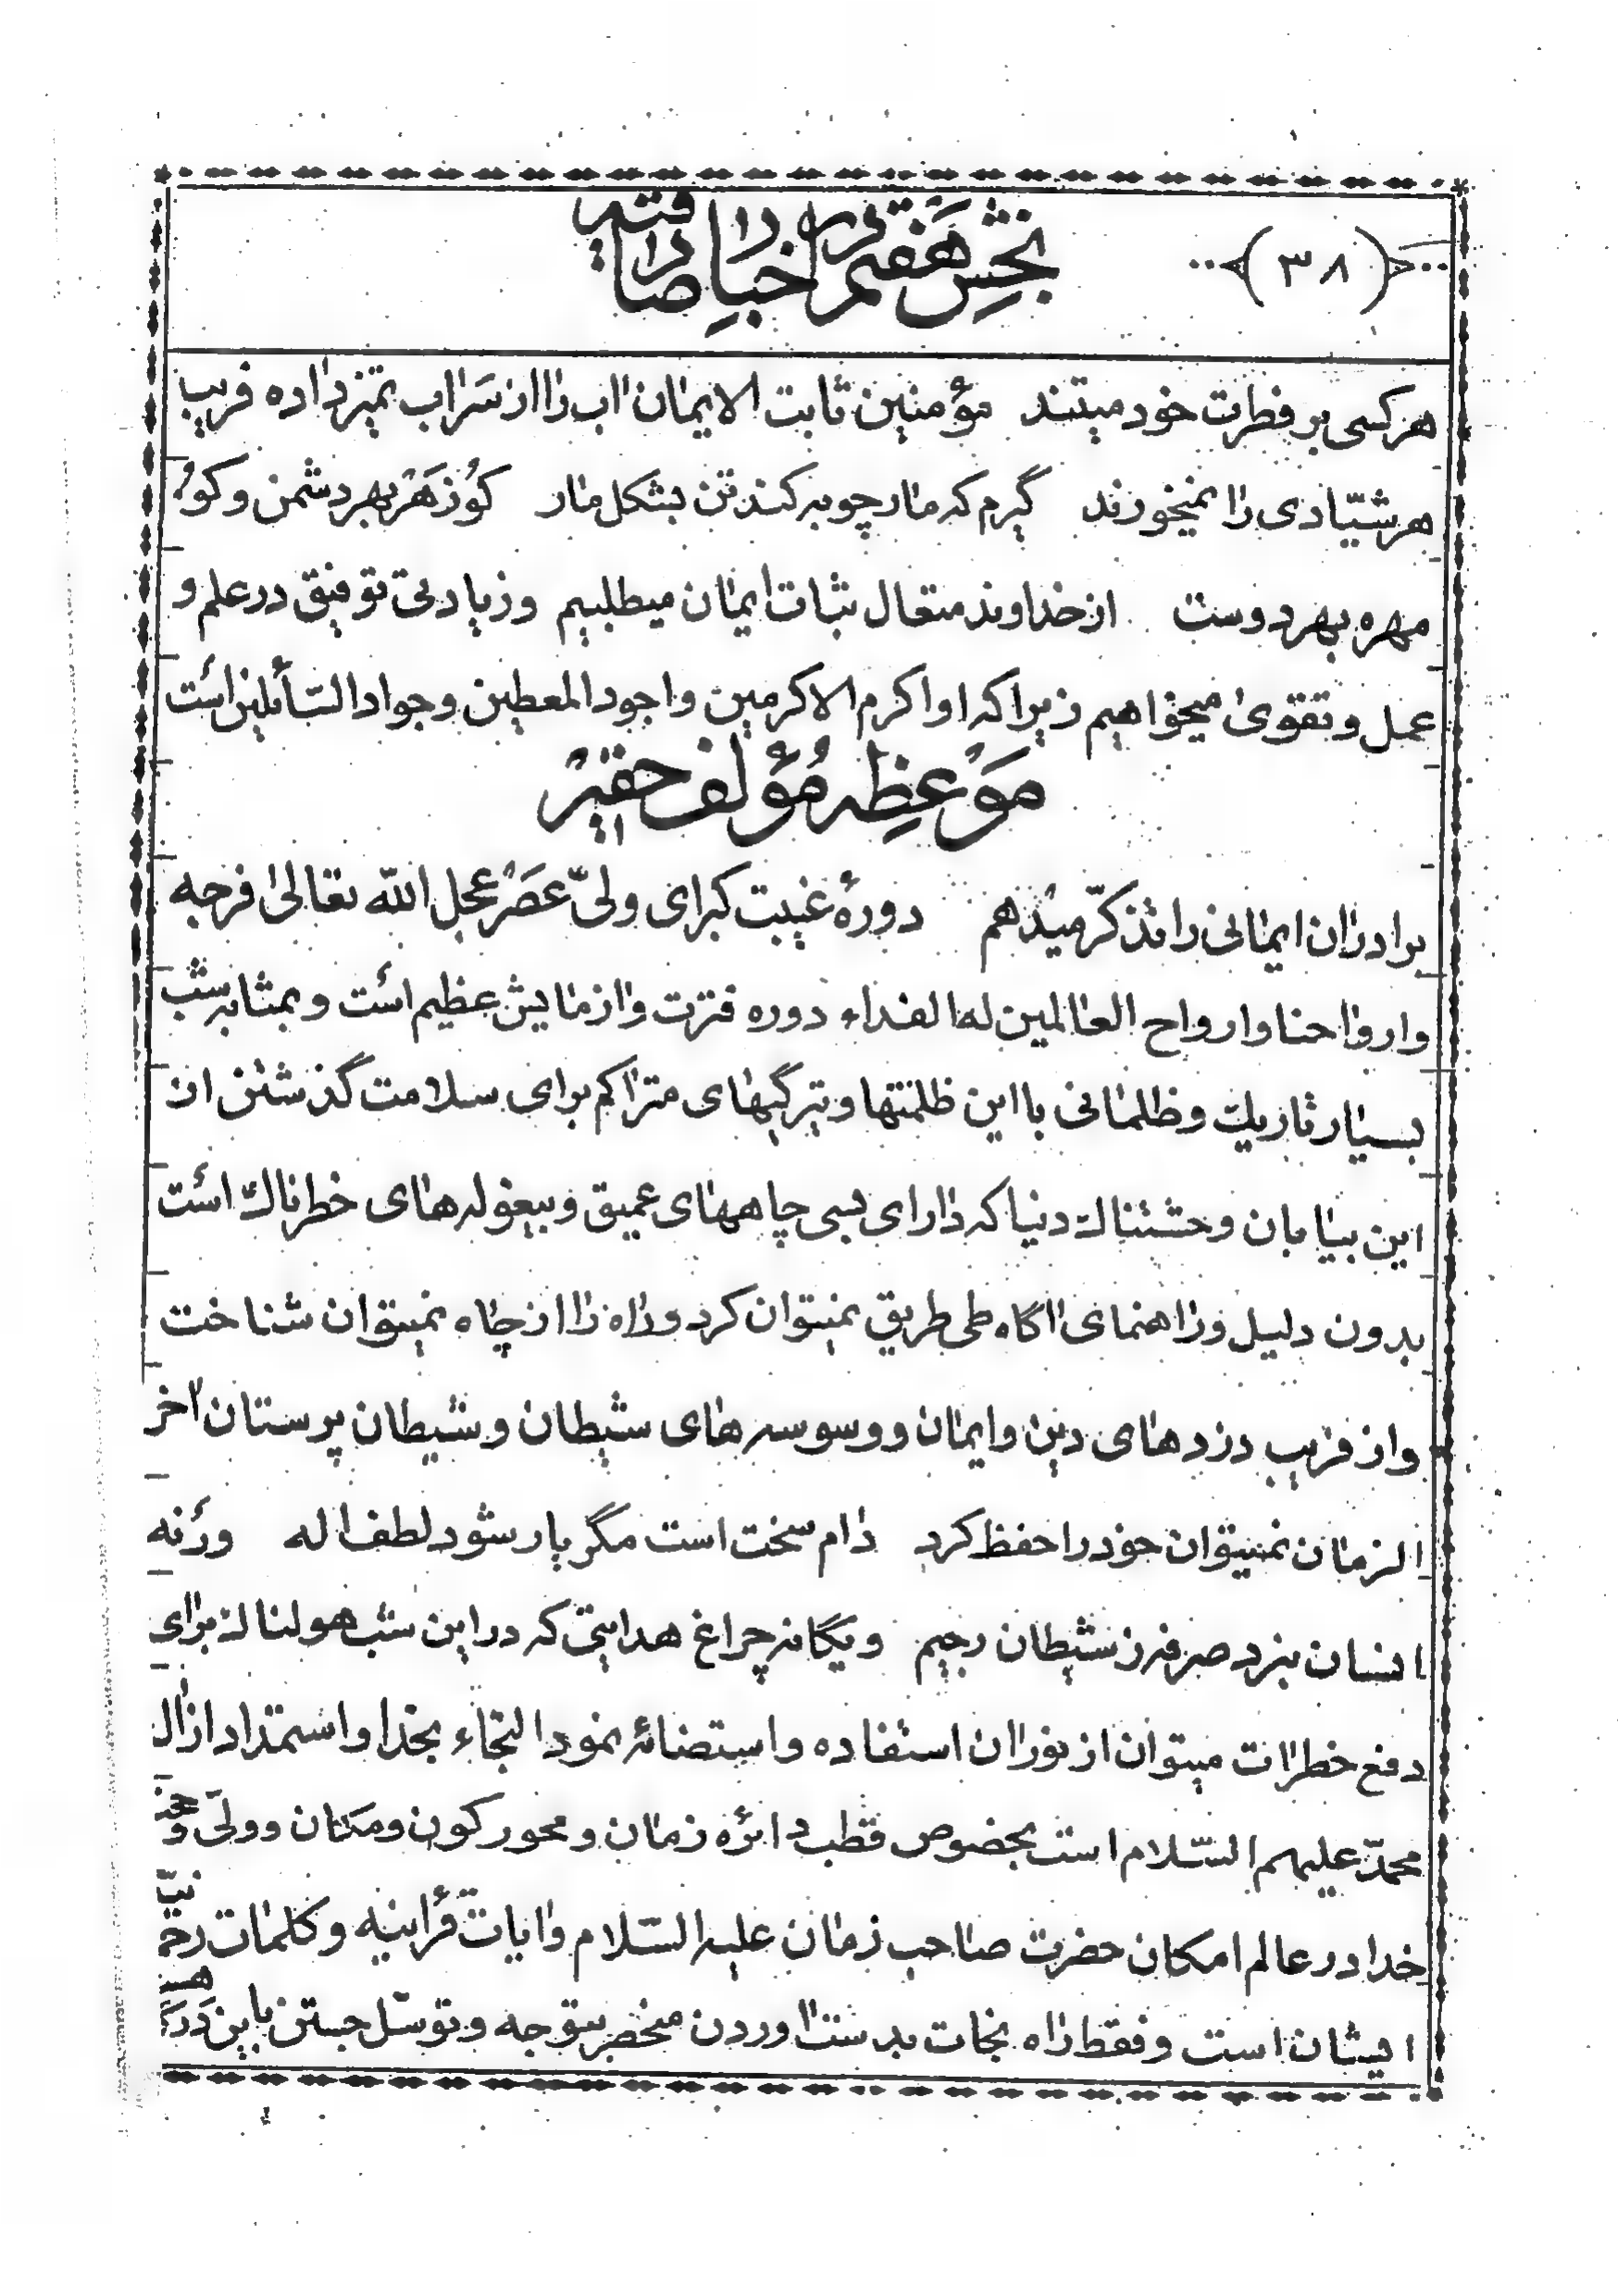 (۳۸)
بخش هفتم در اخبار صادقیه
هر کسی بر فطرت خود میتند مؤمنین ثابت الایمان اب را از سراب تمیز داده فریب
هر شیّادی را نمیخورند گیرم که مار چوبه کند تن بشکل مار کو زهر بهر دشمن و کو
مهره بهر دوست از خداوند متعال ثبات ایمان میطلبیم و زیادتی توفیق در علم و
عمل و تقوی میخواهیم زیرا که او اکرم الاکرمین و اجود المعطین و جواد السّائلین است
موعظه مؤلف حقیر
برادران ایمانی را تذکّر میدهم دورهٔ غیبت کبرای ولیّ عصر عجل الله تعالی فرجه
و ارواحنا و ارواح العالمین له الفداء دوره فترت و ازمایش عظیم است و بمثابه شب
بسیار تاریك و ظلمانی با این ظلمتها و تیرگیهای متراکم برای سلامت گذشتن از
این بیابان وحشتناك دنیا که دارای بسی چاههای عمیق و بیغوله های خطرناك است
بدون دلیل و راهنمای اگاه طی طریق نمیتوان کرد و راه را از چاه نمیتوان شناخت
و از فریب دزدهای دین و ایمان و وسوسه های شیطان و شیطان پرستان آخر
الزمان نمیتوان خود را حفظ کرد دام سخت است مگر یار شود لطف اله ورنه
انسان نبرد صرفه ز شیطان رجیم و یگانه چراغ هدایتی که در این شب هولناك برای
دفع خطرات میتوان از نور ان استفاده و استضائه نمود التجاء بخدا و استمداد از ال
محمّد علیهم السّلام است بخصوص قطب دائره زمان و محور کون و مکان و ولیّ و حجّة
خدا در عالم امکان حضرت صاحب زمان علیه السّلام و ایات قرآنیه و کلمات رحمانیه
ایشان است و فقط راه نجات بدست اوردن منحصر بتوجه و توسّل جستن باین درگه